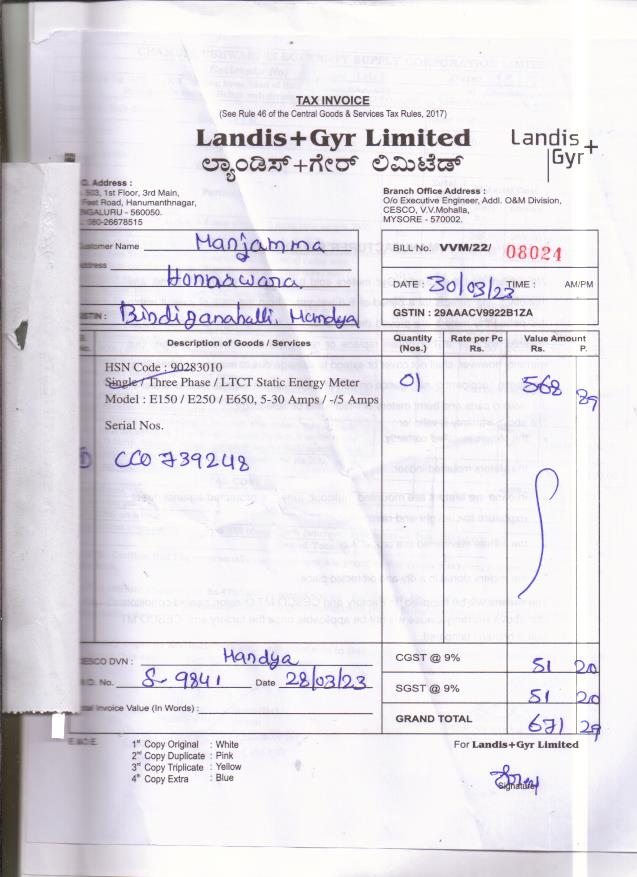 TAX INVOICE
(See Rule 46 of the Central Goods & Services Tax Rules, 2017)
Landis+Gyr Limited
ಲ್ಯಾಂಡಿಸ್+ಗೇರ್ ಲಿಮಿಟೆಡ್
Landis+
Gyr
Address :
503, 1st Floor, 3rd Main,
Feet Road, Hanumanthnagar,
BENGALURU - 560050.
080-26678515
Branch Office Address :
O/o Executive Engineer, Addl. O&M Division,
CESCO, V.V.Mohalla,
MYSORE - 570002.
Customer Name Manjamma
Address
Honnaswara
GSTIN : Bindiganahalli, Mandya
BILL No. VVM/22/ 08024
DATE : 30/03/23 TIME : AM/PM
GSTIN : 29AAACV9922B1ZA
Description of Goods / Services
Quantity (Nos.)
Rate per Pc Rs.
Value Amount Rs. P.
HSN Code : 90283010
Single / Three Phase / LTCT Static Energy Meter 01 568 89
Model : E150 / E250 / E650, 5-30 Amps / -/5 Amps
Serial Nos.
CC0 739248
CESCO DVN : Mandya
No. S-9841 Date 28/03/23
Total Invoice Value (In Words) :
CGST @ 9% 51 20
SGST @ 9% 51 20
GRAND TOTAL 671 29
E.&O.E.
1st Copy Original : White
2nd Copy Duplicate : Pink
3rd Copy Triplicate : Yellow
4th Copy Extra : Blue
For Landis+Gyr Limited
Signature